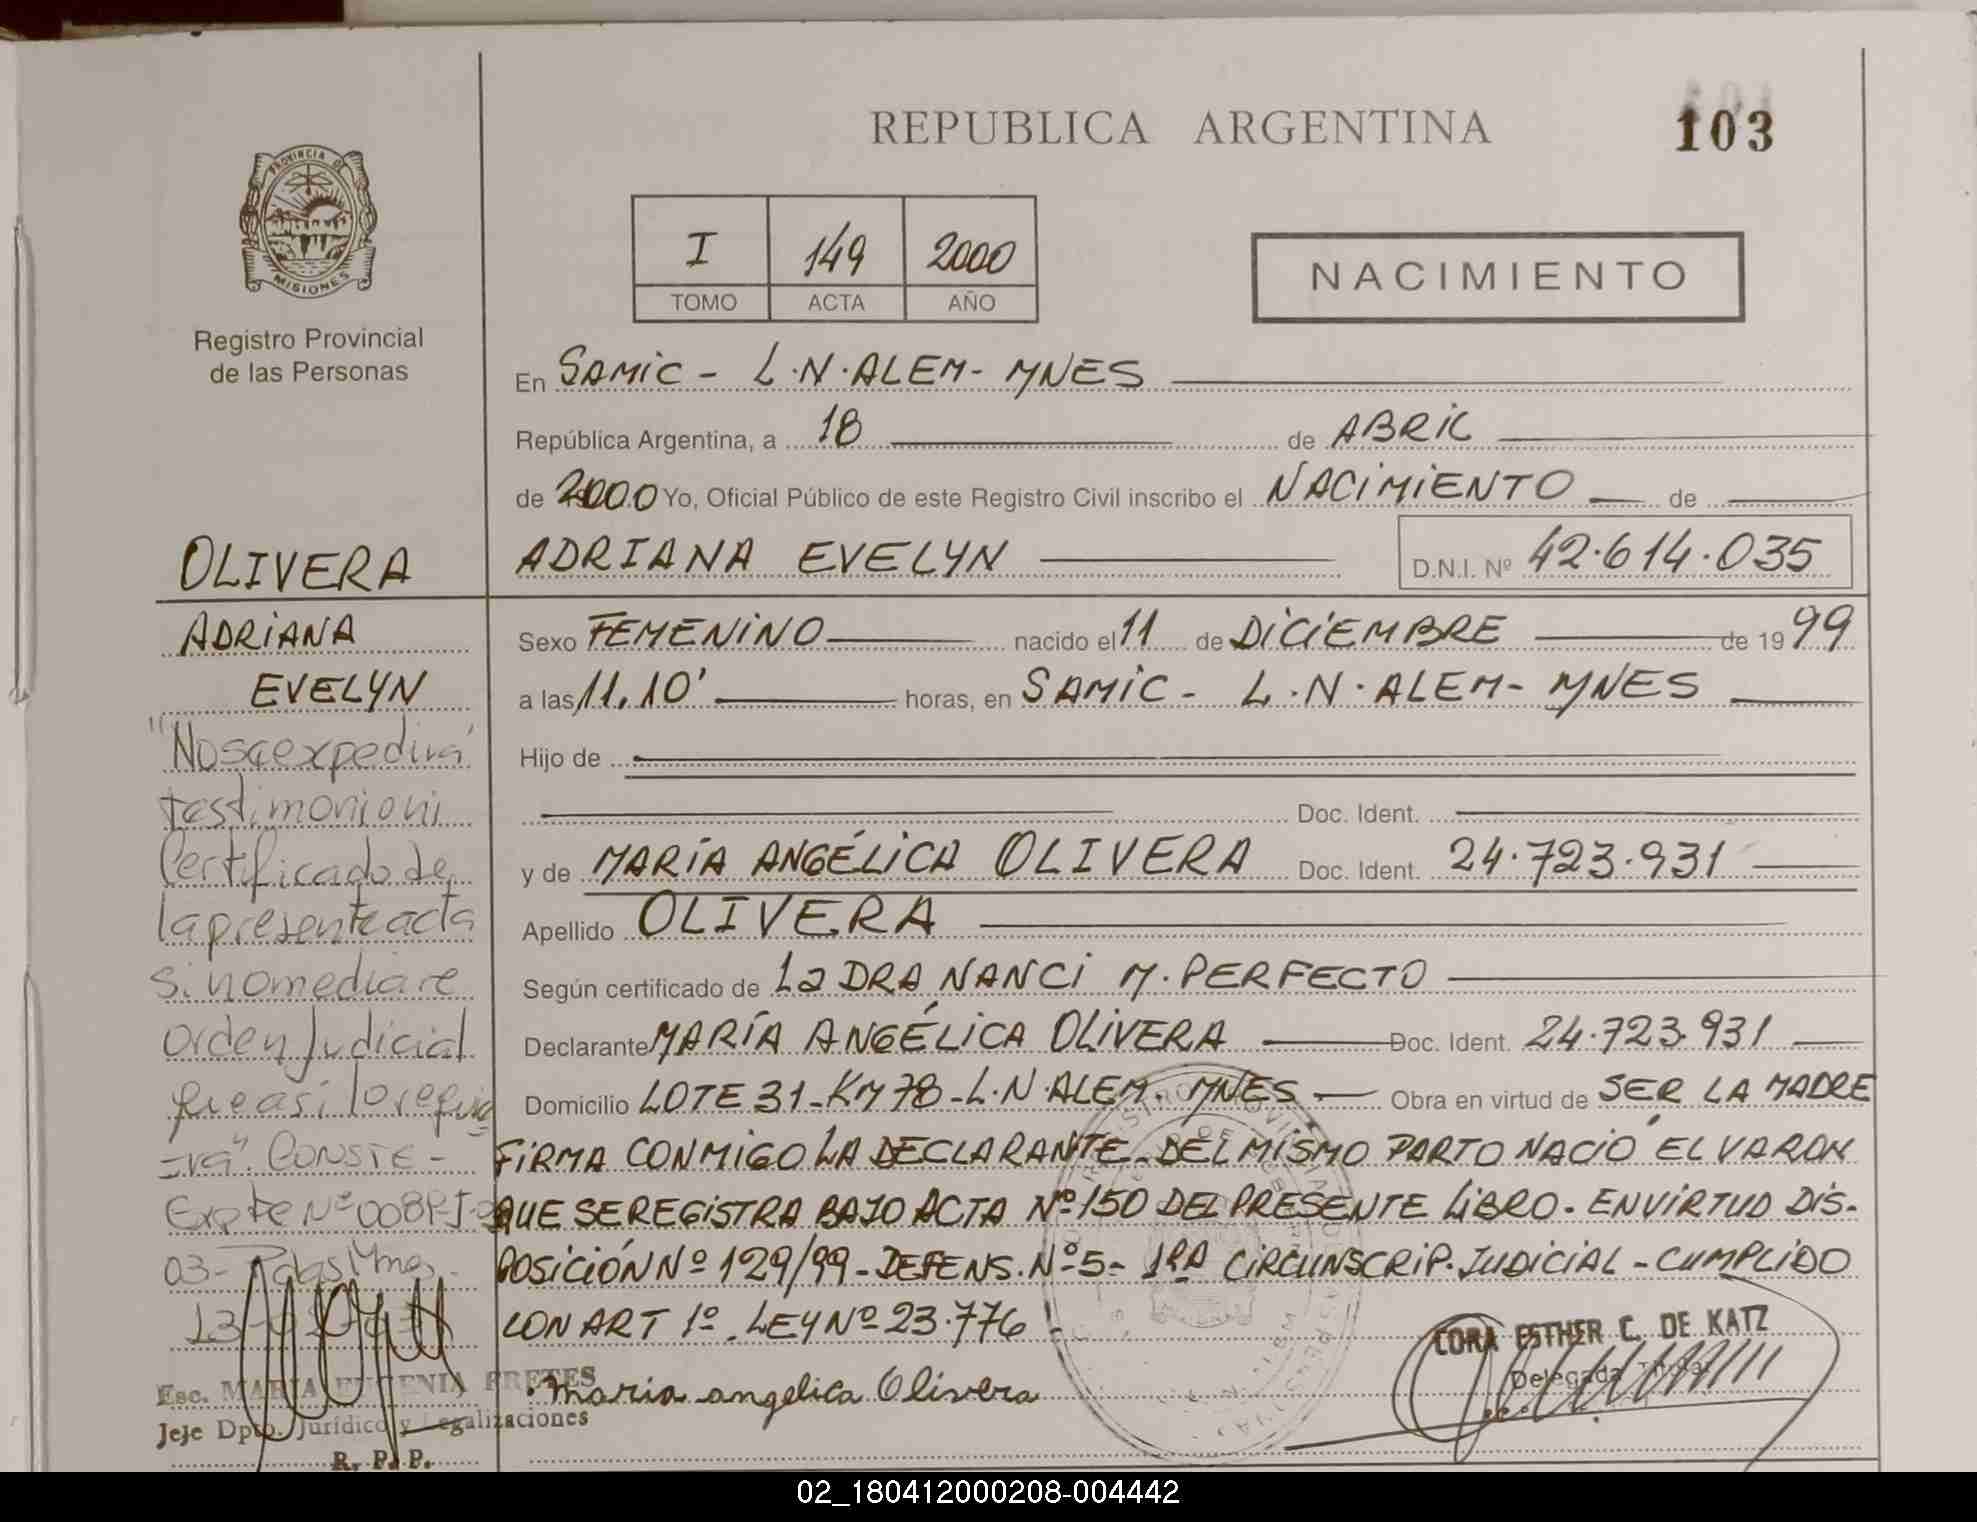 REPUBLICA ARGENTINA
103
PROVINCIA DE
MISIONES
Registro Provincial
de las Personas
I 149 2000
TOMO ACTA AÑO
NACIMIENTO
En SAMIC - L.N. ALEM - MNES
República Argentina, a 18 de ABRIL
de 2000 Yo, Oficial Público de este Registro Civil inscribo el NACIMIENTO de
ADRIANA EVELYN D.N.I. Nº 42.614.035
Sexo FEMENINO nacido el 11 de DICIEMBRE de 1999
a las 11.10' horas, en SAMIC - L.N. ALEM - MNES
Hijo de
Doc. Ident.
y de MARÍA ANGÉLICA OLIVERA Doc. Ident. 24.723.931
Apellido OLIVERA
Según certificado de La DRA NANCI M. PERFECTO
Declarante MARÍA ANGÉLICA OLIVERA Doc. Ident. 24.723.931
Domicilio LOTE 31 - KM 78 - L.N. ALEM. MNES Obra en virtud de SER LA MADRE
FIRMA CONMIGO LA DECLARANTE. DEL MISMO PARTO NACIÓ EL VARON
QUE SE REGISTRA BAJO ACTA Nº 150 DEL PRESENTE LIBRO. EN VIRTUD DIS-
POSICIÓN Nº 129/99 - DEFENS. Nº 5 - 1RA CIRCUNSCRIP. JUDICIAL - CUMPLIDO
CON ART 1º. LEY Nº 23.776
Maria angelica Olivera
CORA ESTHER C. DE KATZ
Delegada Titular
OLIVERA
ADRIANA
EVELYN
"No se expedirá
testimonio ni
Certificado de
la presente acta
si no mediare
Orden Judicial
que así lo requi
-ra". CONSTE -
Expte Nº 008
03- Mnes
13
Esc. MARIA EUGENIA FRETES
Jefe Dpto. Jurídico y Legalizaciones
R. P. P.
02_180412000208-004442